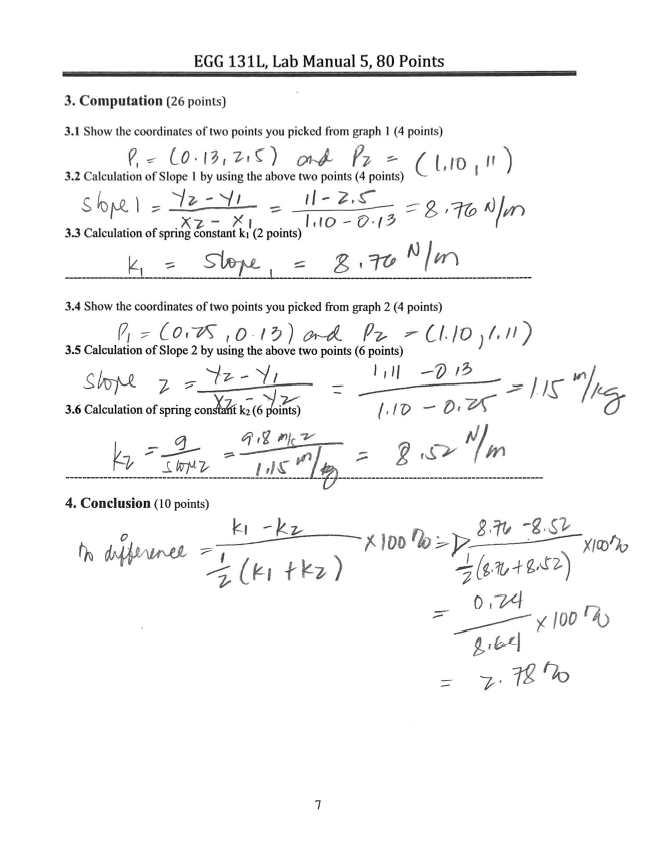 EGG 131L, Lab Manual 5, 80 Points
3. Computation (26 points)
3.1 Show the coordinates of two points you picked from graph 1 (4 points)
P₁ = (0.13, 2.5) and P₂ = (1.10, 11)
3.2 Calculation of Slope 1 by using the above two points (4 points)
Slope 1 = (Y₂ - Y₁)/(X₂ - X₁) = (11 - 2.5)/(1.10 - 0.13) = 8.76 N/m
3.3 Calculation of spring constant k₁ (2 points)
k₁ = Slope₁ = 8.76 N/m
3.4 Show the coordinates of two points you picked from graph 2 (4 points)
P₁ = (0.25, 0.13) and P₂ = (1.10, 1.11)
3.5 Calculation of Slope 2 by using the above two points (6 points)
Slope 2 = (Y₂ - Y₁)/(X₂ - Y₂) = (1.11 - 0.13)/(1.10 - 0.25) = 1.15 m/kg
3.6 Calculation of spring constant k₂ (6 points)
k₂ = g/slope2 = (9.8 m/s2)/(1.15 m/kg) = 8.52 N/m
4. Conclusion (10 points)
% difference = (k₁ - k₂)/(½(k₁ + k₂)) × 100% => (8.76 - 8.52)/(½(8.76 + 8.52)) × 100%
= 0.24/8.64 × 100%
= 2.78%
7